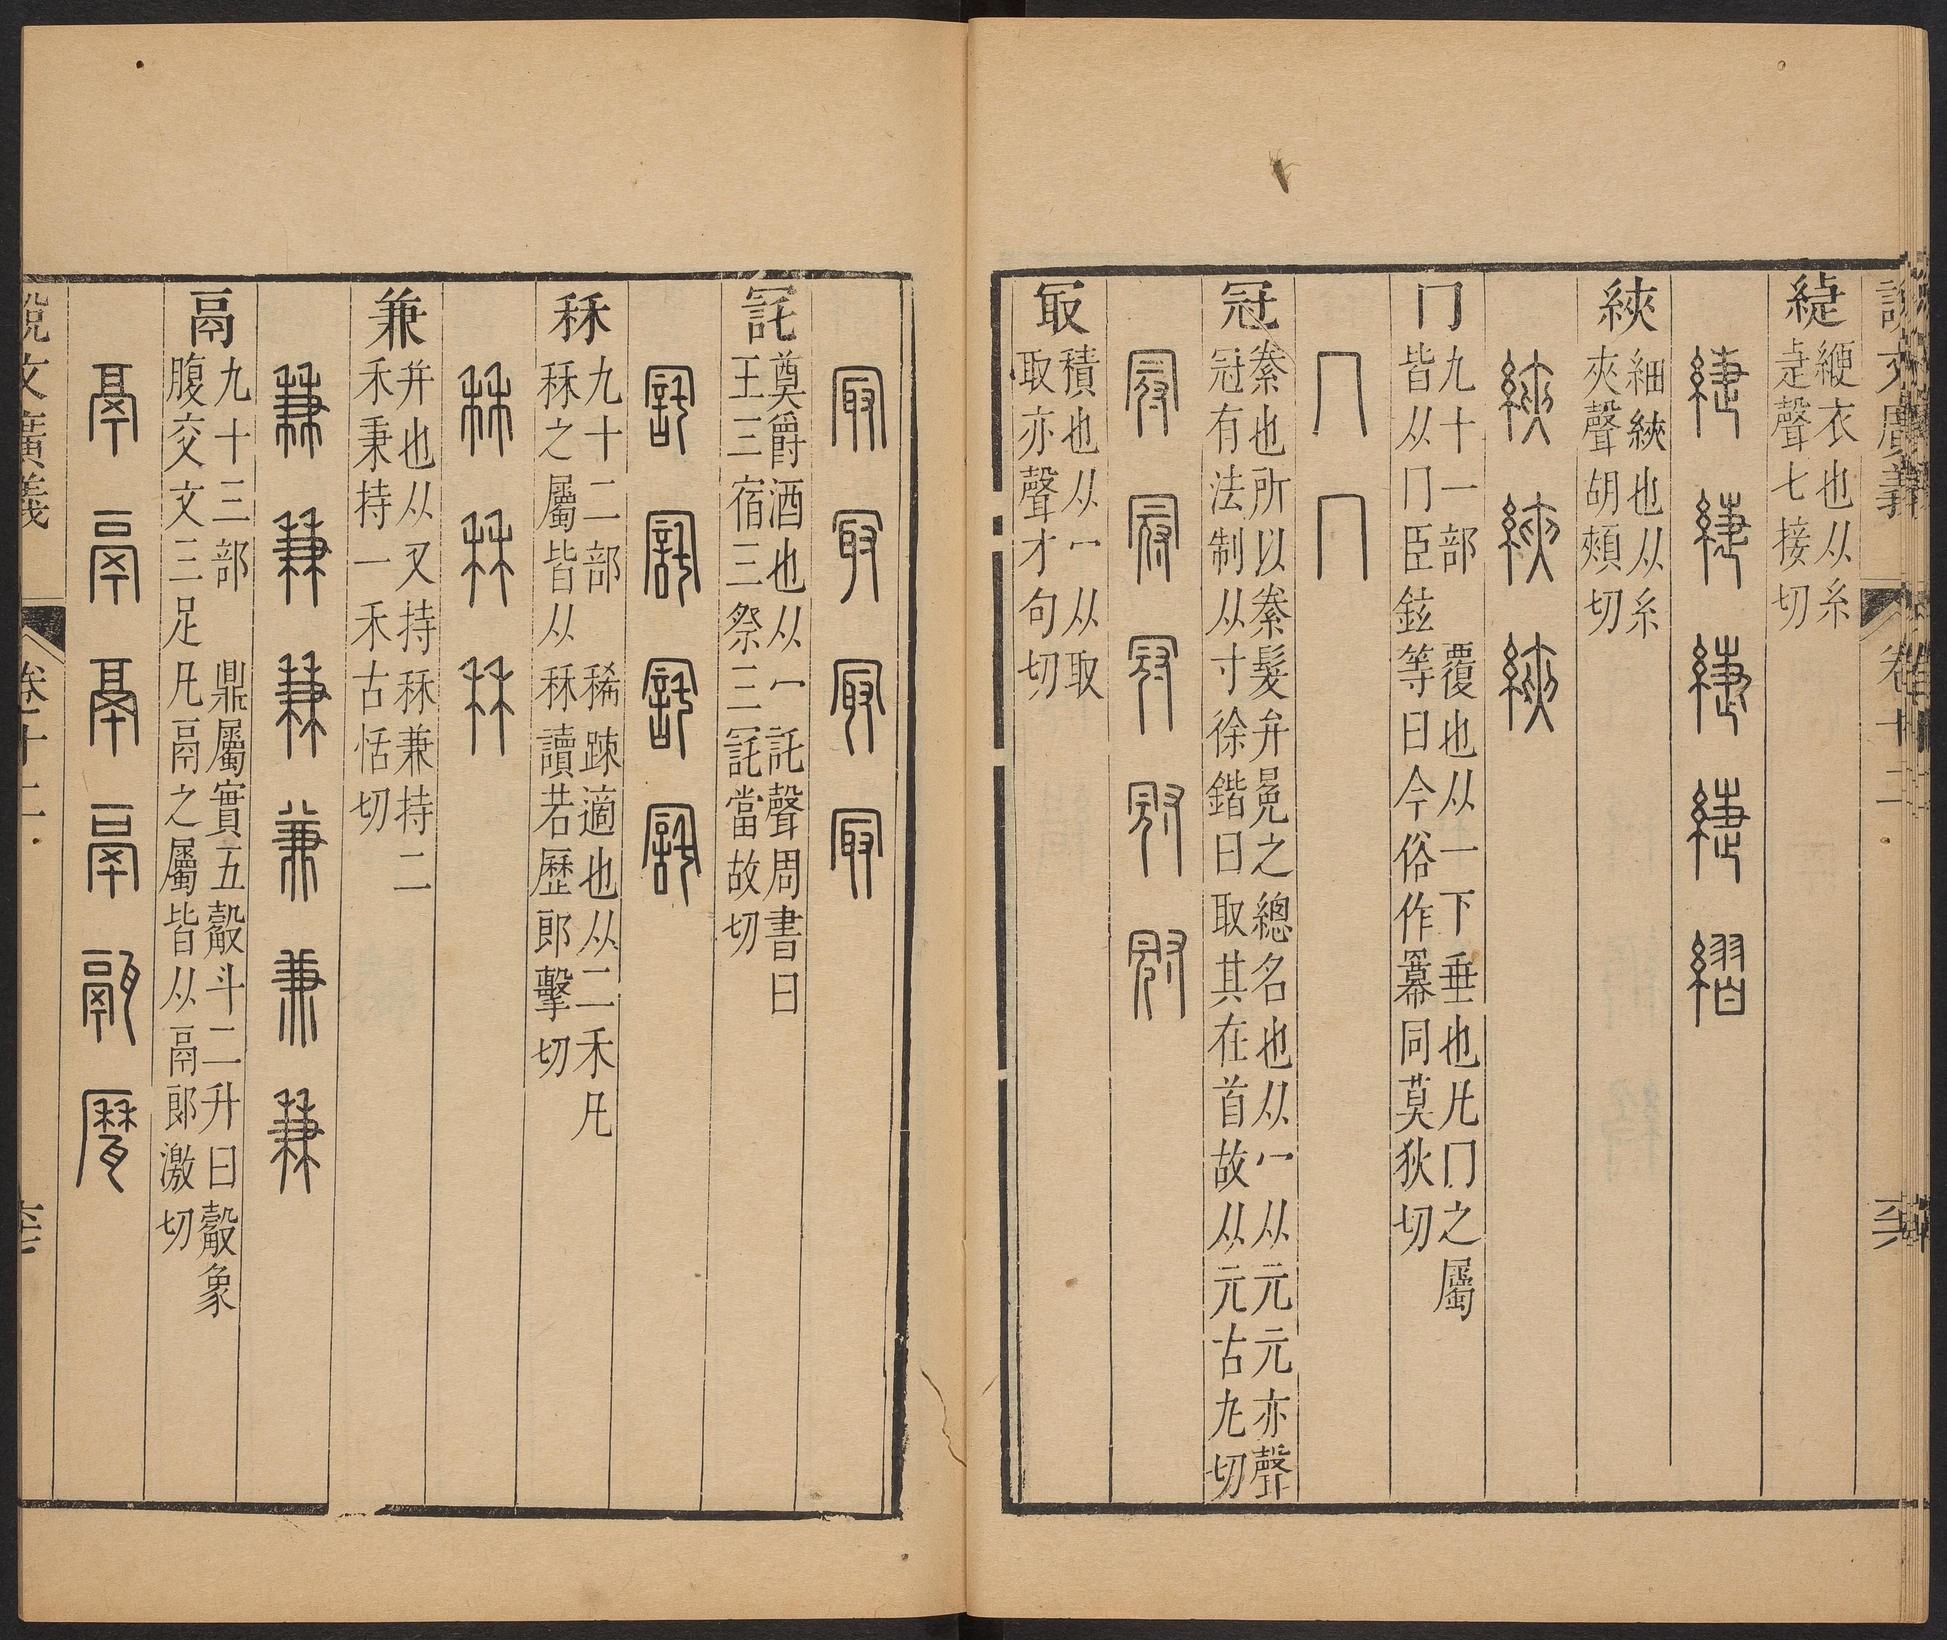 緁
緶衣也从糸
疌聲七接切
綊
細綊也从糸
夾聲胡頰切
冂
九十一部 覆也从一下垂也凡冂之屬
皆从冂臣鉉等曰今俗作冪同莫狄切
冠
絭也所以絭髮弁冕之總名也从冖从元元亦聲
冠有法制从寸徐鍇曰取其在首故从元古九切
冣
積也从冖从取
取亦聲才句切
奠爵酒也从冖託聲周書曰
王三宿三祭三詫當故切
秝
九十二部 稀疎適也从二禾凡
秝之屬皆从秝讀若歷郎擊切
兼
并也从又持秝兼持二
禾秉持一禾古恬切
鬲
九十三部 鼎屬實五觳斗二升曰觳象
腹交文三足凡鬲之屬皆从鬲郎激切
說文廣義
卷十二